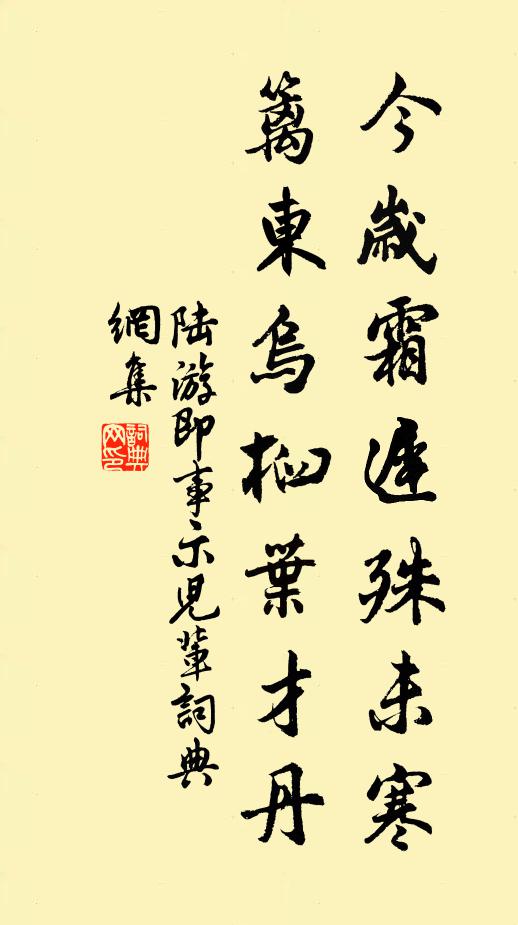 今歲霜遲殊未寒
籬東烏桕葉才丹
陸游即事示児輩詞典
網集
詞典網印